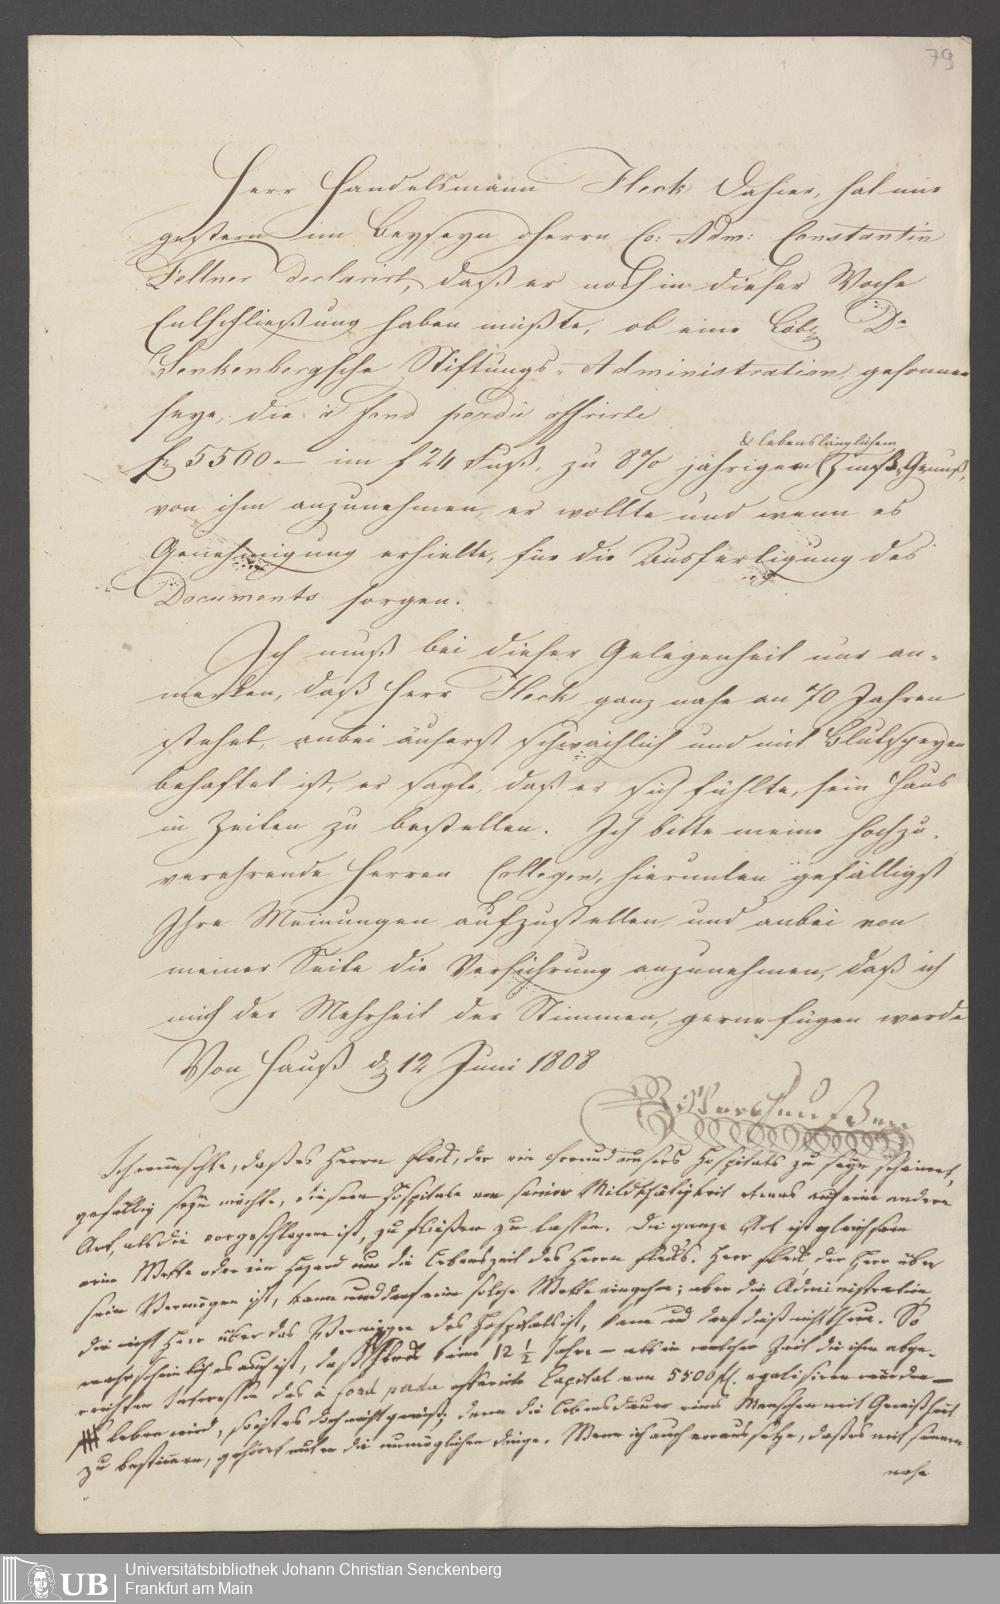 79
Herr Handelsmann Fleck dahier, hat mir
gestern im Beyseyn Herrn Co: Adm: Constantin
Fellner declarirt, daß er noch in dieser Woche
Entschließung haben müßte, ob eine Löbl. Dr
Senkenbergsche Stiftungs-Administration gesonnen
seye, die à fond perdu offerirte
& lebenslänglichem
f 5500 – im f 24 Fuß, zu 8% jährigem Zinß-Genuß,
von ihm anzunehmen, er wollte und wenn es
Genehmigung erhielte, für die Ausfertigung des
Documents sorgen.
Ich muß bei dieser Gelegenheit nur an-
merken, daß Herr Fleck ganz nahe an 70 Jahren
stehet, anbei äuserst schwächlich und mit Blutspeyen
behaftet ist, er sagte, daß er sich fühlte, sein Haus
in Zeiten zu bestellen. Ich bitte meine hochzu-
verehrende Herren Collegen, hierunten gefälligst
Ihre Meinungen aufzustellen, und anbei von
meiner Seite die Versichrung anzunehmen, daß ich
mich der Mehrheit der Stimmen, gerne fügen werde
Von Hauß d 12 Juni 1808
Rittershaußen
Ich wünschte, daß es Herrn Fleck, der ein Freund unsers Hospitals zu seyn scheinet,
gefällig seyn möchte, diesem Hospitale von seiner Mildthätigkeit etwas auf eine andere
Art, als die vorgeschlagene ist, zu fließen zu lassen. Die ganze Art ist gleichsam
eine Wette oder ein Hazard um die Lebenszeit des Herrn Flecks. Herr Fleck der Herr über
sein Vermögen ist, kann und darf eine solche Wette eingehen; aber die Administration,
die nicht Herr über das Vermögen des Hospitals ist, kann und darf dieß nicht thun. So
wahrscheinlich es auch ist, daß Fleck keine 12 1/2 Jahre – als in welcher Zeit die ihm abge-
reichten Interessen das à fond perdu offerirte Capital von 5500 fl. egalisiren würden –
leben wird, so ist es doch nicht gewiß; denn die Lebensdauer eines Menschen mit Gewißheit
zu bestimmen, gehört unter die unmöglichen Dinge. Wenn ich auch voraussetze, daß es mit seinem
nahe
UB
Universitätsbibliothek Johann Christian Senckenberg
Frankfurt am Main